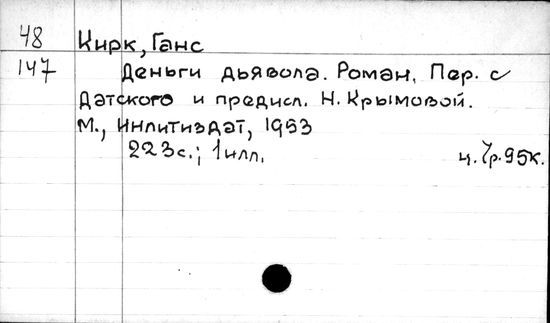 48 Кирк, Ганс
147 Деньги дьявола. Роман. Пер. с
датского и предисл. Н. Крымовой.
М., Инлитиздат, 1953
223с.; 1 илл. ц. 7р. 95к.